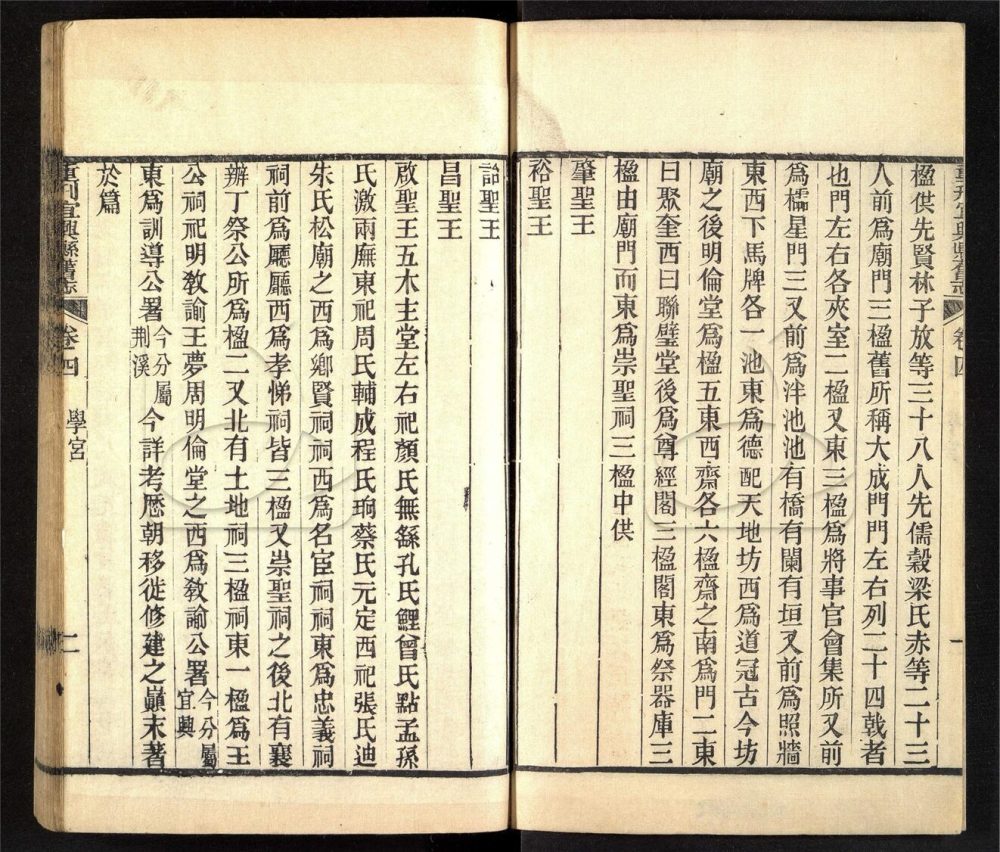 重刋宜興縣舊志 卷四 一
楹供先賢林子放等三十八人先儒穀梁氏赤等二十三
人前爲廟門三楹舊所稱大成門門左右列二十四戟者
也門左右各夾室二楹又東三楹爲將事官會集所又前
爲櫺星門三又前爲泮池池有橋有闌有垣又前爲照牆
東西下馬牌各一池東爲德配天地坊西爲道冠古今坊
廟之後明倫堂爲楹五東西齋各六楹齋之南爲門二東
曰聚奎西曰聯璧堂後爲尊經閣三楹閣東爲祭器庫三
楹由廟門而東爲崇聖祠三楹中供
肇聖王
裕聖王
詒聖王
昌聖王
啟聖王五木主堂左右祀顏氏無繇孔氏鯉曾氏點孟孫
氏激兩廡東祀周氏輔成程氏珦蔡氏元定西祀張氏迪
朱氏松廟之西爲鄉賢祠祠西爲名宦祠祠東爲忠義祠
祠前爲廳廳西爲孝悌祠皆三楹又崇聖祠之後北有襄
辦丁祭公所爲楹二又北有土地祠三楹祠東一楹爲王
公祠祀明敎諭王夢周明倫堂之西爲敎諭公署今分屬宜興
東爲訓導公署今分屬荆溪今詳考歷朝移徙修建之巔末著
於篇
重刋宜興縣舊志 卷四 學宮 二